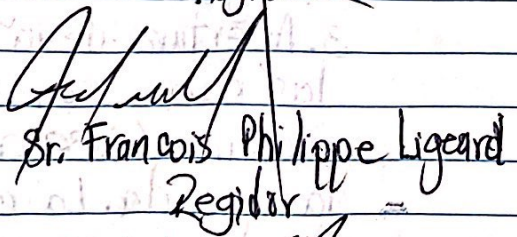 Sr. Francois Philippe Ligeard
Regidor